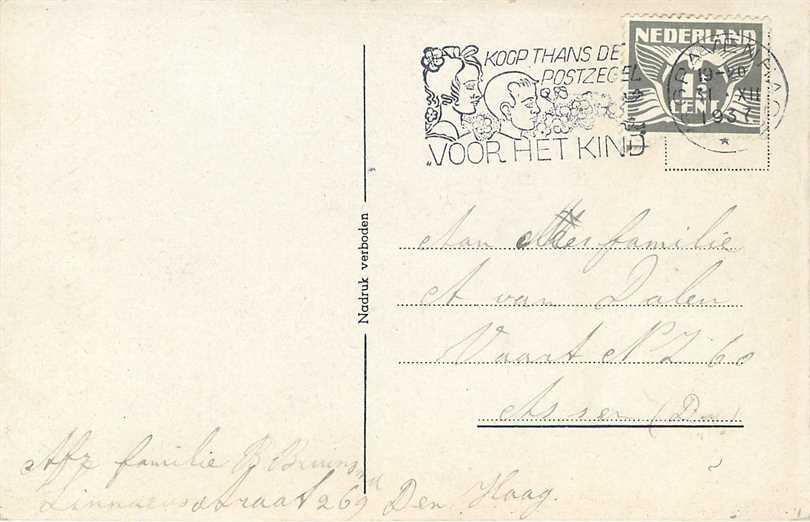 KOOP THANS DE
POSTZEGEL
„VOOR HET KIND
NEDERLAND
1
CENT
'S-GRAVENHAGE
19-
31 XII
1937
Nadruk verboden
Aan familie
A van Dalen
Vaart NZ 60
Assen (Dr)
Afz familie B Bruins
Linnaeusstraat 269 Den Haag.